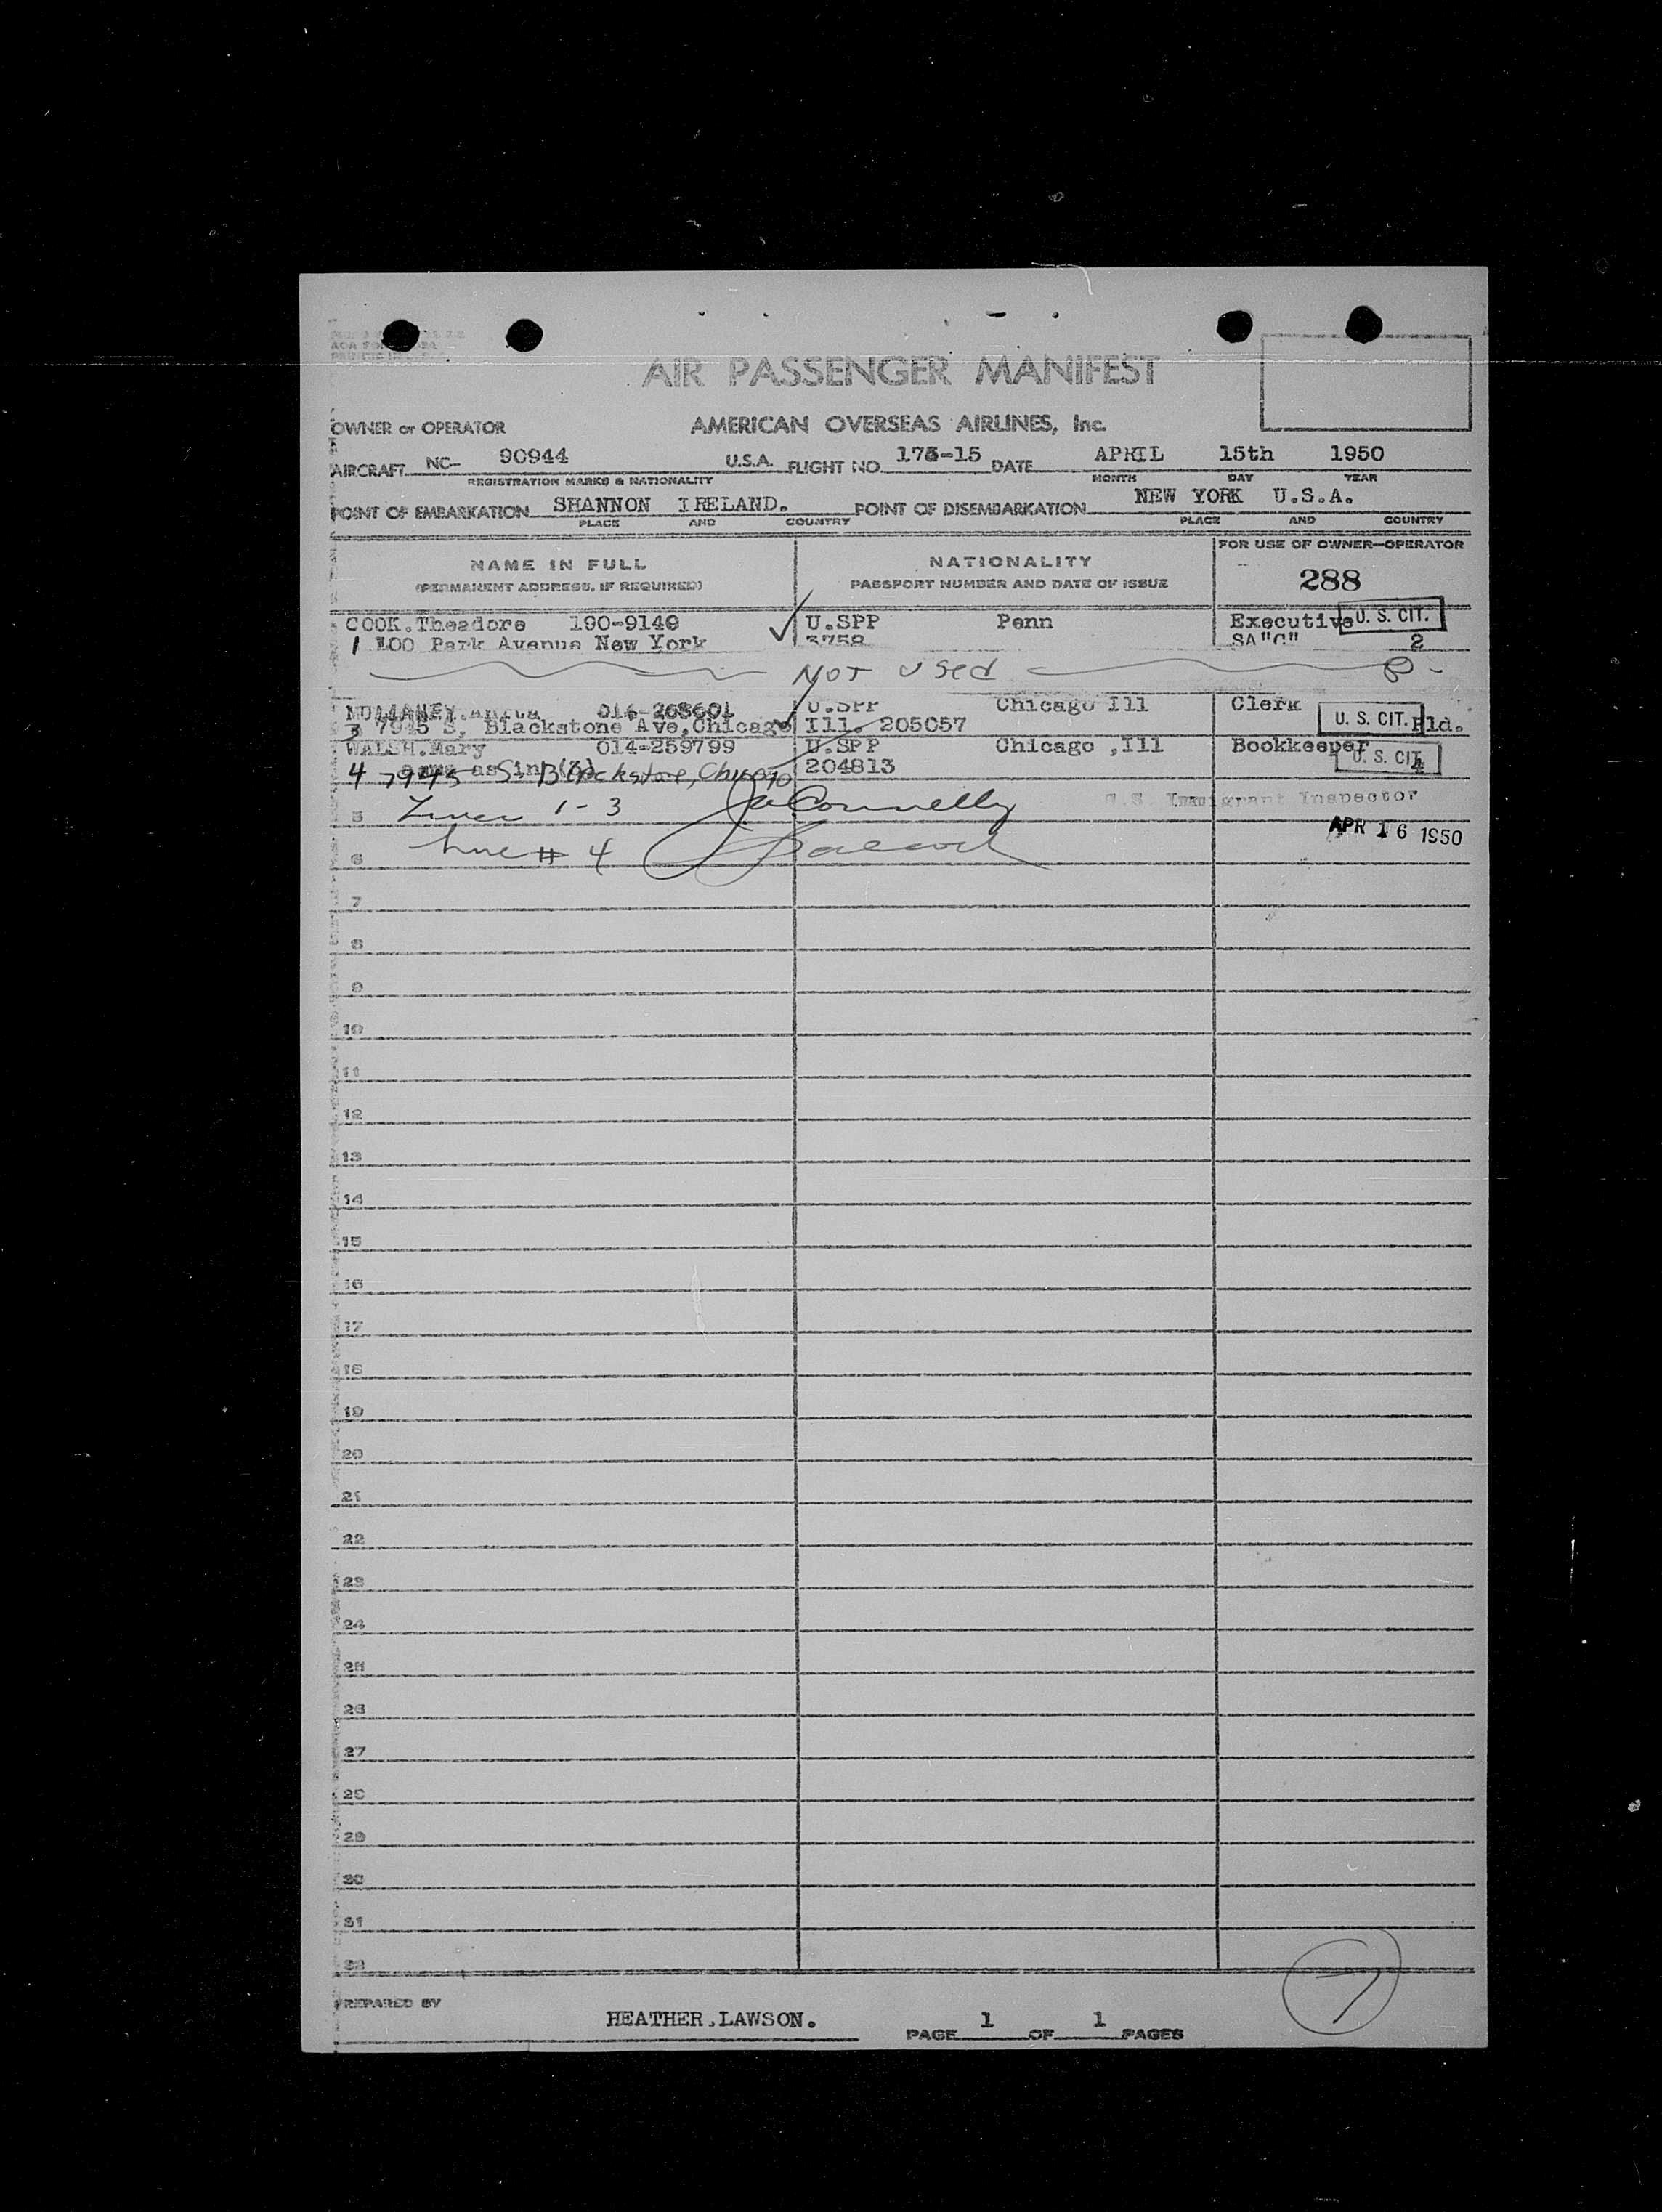 AIR PASSENGER MANIFEST
OWNER or OPERATOR AMERICAN OVERSEAS AIRLINES, Inc.
AIRCRAFT NC- 90944 U.S.A. FLIGHT NO. 175-15 DATE APRIL 15th 1950
REGISTRATION MARKS & NATIONALITY MONTH DAY YEAR
POINT OF EMBARKATION SHANNON IRELAND. POINT OF DISEMBARKATION NEW YORK U.S.A.
PLACE AND COUNTRY PLACE AND COUNTRY
NAME IN FULL NATIONALITY FOR USE OF OWNER—OPERATOR
(PERMANENT ADDRESS, IF REQUIRED) PASSPORT NUMBER AND DATE OF ISSUE 288
COOK.Theadore 190-9149 U.SPP Penn Executive U. S. CIT.
1 100 Park Avenue New York 3758 SA"C" 2
NOT USED
MULLANEY. 014-268601 U.SPP Chicago Ill Clerk
3 7945 S, Blackstone Ave,Chicago Ill. 205057 U. S. CIT. Bld.
WALSH.Mary 014-259799 U.SPP Chicago ,Ill Bookkeeper
4 same as in (3) 7945 S. Blackstone, Chicago 204813 U. S. CIT. 4
5 Lines 1-3 Connelly U.S. Immigrant Inspector
6 Line # 4 APR 16 1950
7
8
9
10
11
12
13
14
15
16
17
18
19
20
21
22
23
24
25
26
27
28
29
30
31
32
PREPARED BY HEATHER.LAWSON. PAGE 1 OF 1 PAGES
7